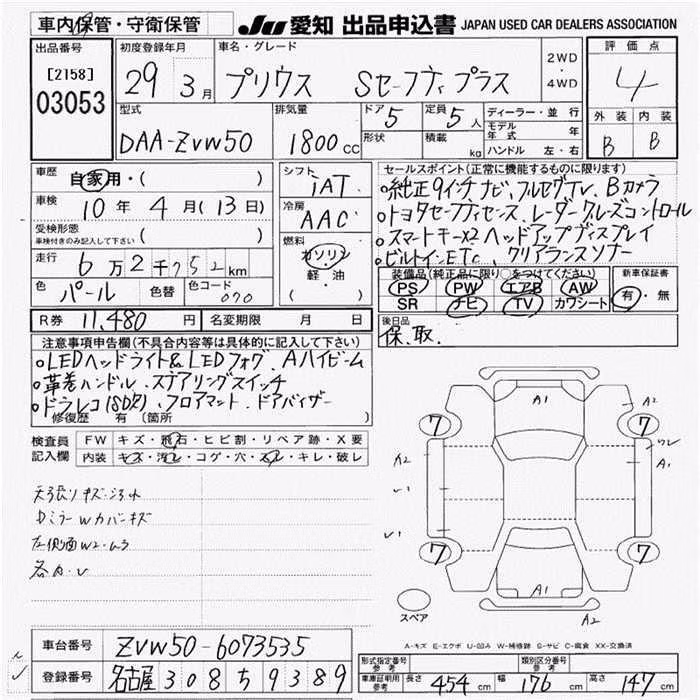 車内保管・守衛保管
JU 愛知 出品申込書 JAPAN USED CAR DEALERS ASSOCIATION
出品番号 初度登録年月 車名・グレード 2WD・4WD 評価点
[2158] 03053 29年 3月 プリウス Sセーフティプラス 4
型式 排気量 ドア 5 定員 5人 ディーラー・並行 外装 内装
DAA-ZVW50 1800cc 形状 積載 kg モデル年式 年 B B
ハンドル 左・右
車歴 自家用・( ) シフト IAT セールスポイント(正常に機能するものに限ります)
車検 10年 4月(13日) 冷房 AAC
受検形態 車検付きのみ記入して下さい ( )
燃料 ガソリン 軽・油 ( )
走行 6万2千752km
色 パール 色替 色コード 070
○純正9インチナビ、フルセグTV、Bカメラ
○トヨタセーフティセンス、レーダークルーズコントロール
○スマートキー×2 ヘッドアップディスプレイ
○ビルトインETC、クリアランスソナー
装備品(純正品に限り○をつけてください) 新車保証書
PS PW エアB AW 有・無
SR ナビ TV カワシート
R券 11,480円 名変期限 月 日
後日品
保、取、
注意事項申告欄(不具合内容等は具体的に記入して下さい)
○LEDヘッドライト&LEDフォグ、Aハイビーム
○革巻ハンドル、ステアリングスイッチ
○ドラレコ(SD欠)、フロアマット、ドアバイザー
修復歴 有 (箇所 )
検査員記入欄 FW キズ・飛石・ヒビ割・リペア跡・X要
内装 キズ・汚レ・コゲ・穴・スレ・キレ・破レ
天張りキズ・汚れ
DミラーWカバーキズ
左側面W2・ムラ
各A・U
A1
A2
7 7
A2
A1
7 7
A1
A2
スペア
A-キズ E-エクボ U-凹み W-補修跡 S-サビ C-腐食 XX-交換済
車台番号 ZVW50-6073535
登録番号 名古屋 308 5 9389
型式指定番号 参考 類別区分番号 参考
車庫証明用 参考 長さ 454cm 幅 176cm 高さ 147cm